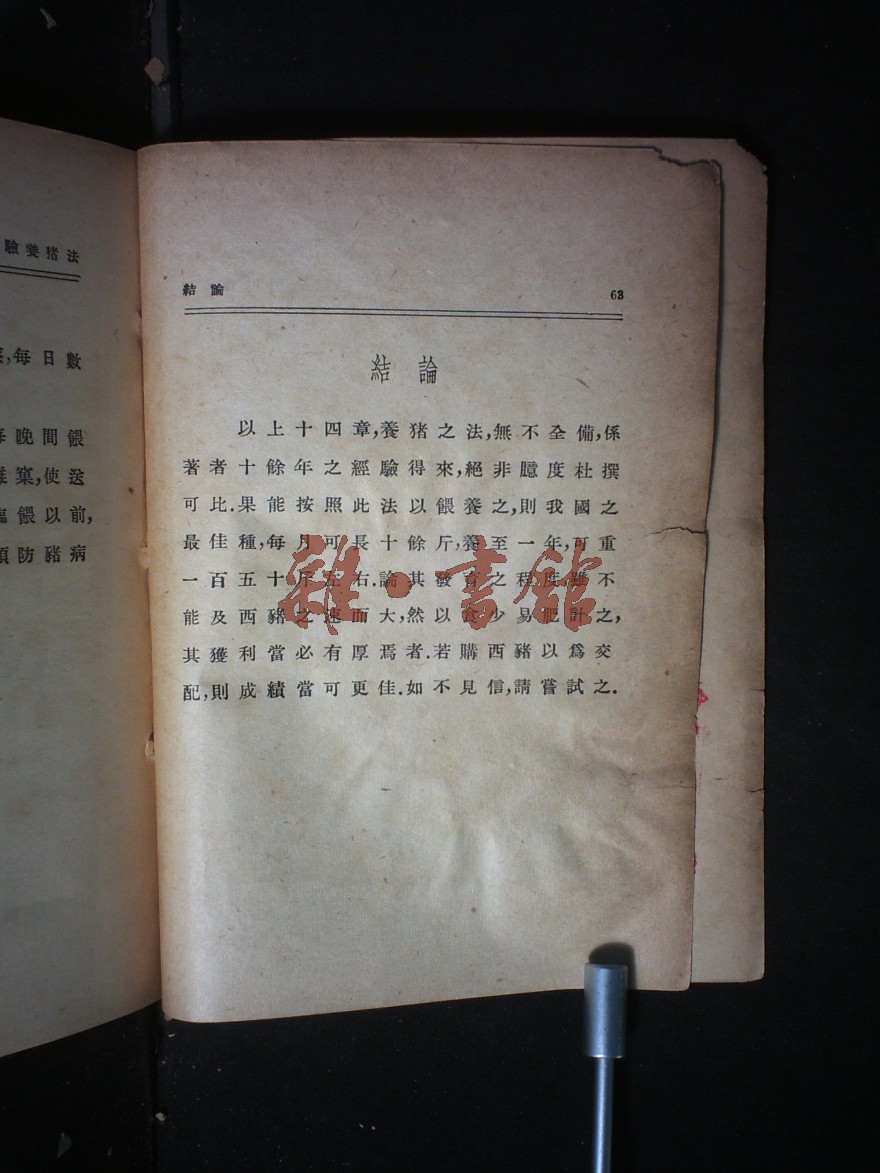 驗養猪法
,每日數
每晚間餵
窠,使送
臨餵以前,
預防豬病
結論 63
結論
以上十四章,養猪之法,無不全備,係
著者十餘年之經驗得來,絕非臆度杜撰
可比.果能按照此法以餵養之,則我國之
最佳種,每月可長十餘斤,養至一年,可重
一百五十斤左右.論其發育之程度,雖不
能及西豬之速而大,然以食少易肥計之,
其獲利當必有厚焉者.若購西豬以爲交
配,則成績當可更佳.如不見信,請嘗試之.
雜·書館